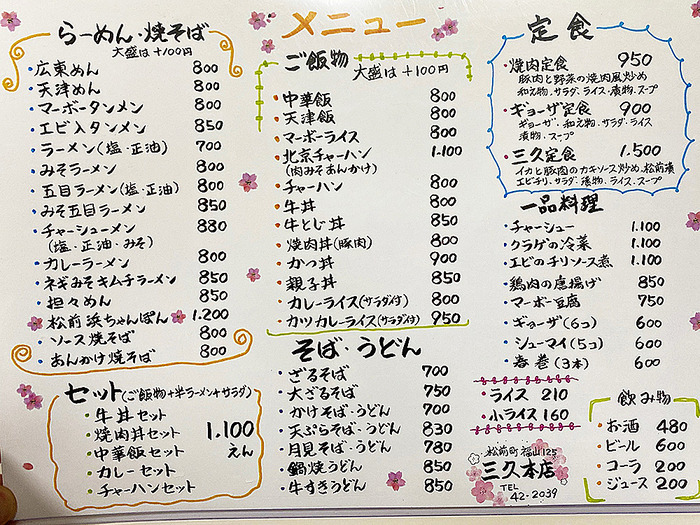 メニュー
らーめん・焼そば
大盛は+100円
・広東めん 800
・天津めん 800
・マーボータンメン 800
・エビ入タンメン 850
・ラーメン(塩・正油) 700
・みそラーメン 800
・五目ラーメン(塩・正油) 800
・みそ五目ラーメン 850
・チャーシューメン 880
(塩・正油・みそ)
・カレーラーメン 800
・ネギみそキムチラーメン 850
・担々めん 850
・松前浜ちゃんぽん 1.200
・ソース焼そば 800
・あんかけ焼そば 800
セット(ご飯物+半ラーメン+サラダ)
・牛丼セット
・焼肉丼セット
・中華飯セット
・カレーセット
・チャーハンセット
1.100
えん
ご飯物
大盛は+100円
・中華飯 800
・天津飯 800
・マーボーライス 800
・北京チャーハン 1.100
(肉みそあんかけ)
・チャーハン 800
・牛丼 800
・牛とじ丼 850
・焼肉丼(豚肉) 800
・かつ丼 900
・親子丼 850
・カレーライス(サラダ付) 800
・カツカレーライス(サラダ付) 950
そば・うどん
・ざるそば 700
・大ざるそば 750
・かけそば・うどん 700
・天ぷらそば・うどん 830
・月見そば・うどん 780
・鍋焼うどん 850
・牛すきうどん 850
定食
・焼肉定食 950
豚肉と野菜の焼肉風炒め
和え物、サラダ、ライス、漬物、スープ
・ギョーザ定食 900
ギョーザ、和え物、サラダ、ライス
漬物、スープ
・三久定食 1.500
イカと豚肉のカキソース炒め、松前漬
エビチリ、サラダ、漬物、ライス、スープ
一品料理
・チャーシュー 1.100
・クラゲの冷菜 1.100
・エビのチリソース煮 1.100
・鶏肉の唐揚げ 850
・マーボー豆腐 750
・ギョーザ(6コ) 600
・シューマイ(5コ) 600
・春巻(3本) 600
・ライス 210
・小ライス 160
松前町福山125
三久本店
TEL
42-2039
飲み物
・お酒 480
・ビール 600
・コーラ 200
・ジュース 200